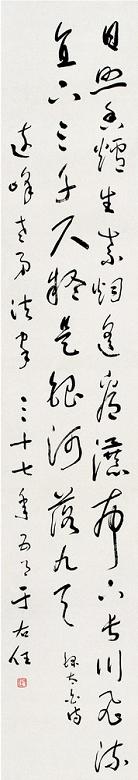 日照香爐生紫烟遙看瀑布下長川飛流
直下三千尺疑是銀河落九天
太白詩
峰老弟法家 三十七年五月 于右任